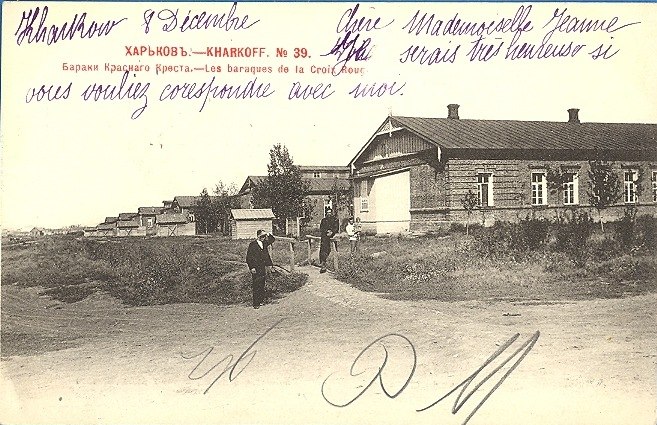 Kharkow 8 Décembre Chère Mademoiselle Jeanne
ХАРЬКОВЪ.—KHARKOFF. № 39. Je serais très heureuse si
Бараки Краснаго Креста.—Les baraques de la Croix Rouge
vous vouliez corespondre avec moi.
46